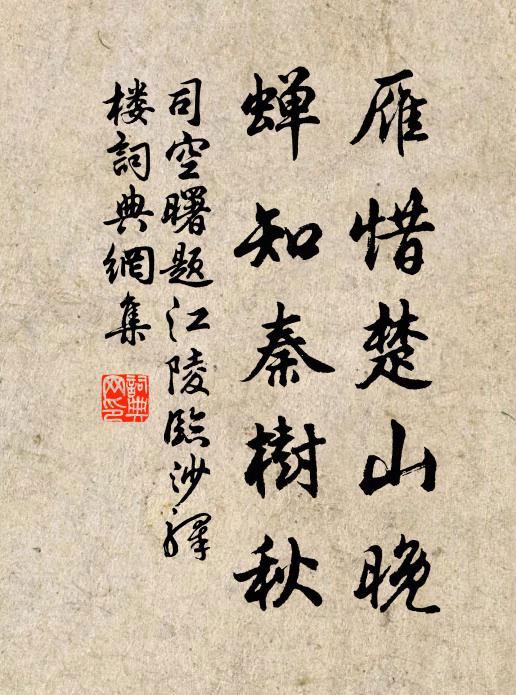 雁惜楚山晚
蝉知秦樹秋
司空曙题江陵臨沙驛
楼詞典網集
詞典网印